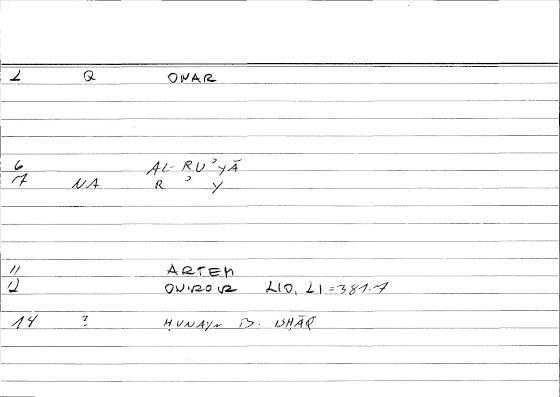 1 Q ONAR
6 AL-RUʾYĀ
7 NA R ʾ Y
11 ARTEM
12 ONIROCR 210, 21=381.7
14 ? ḤUNAYN B. ISḤĀQ